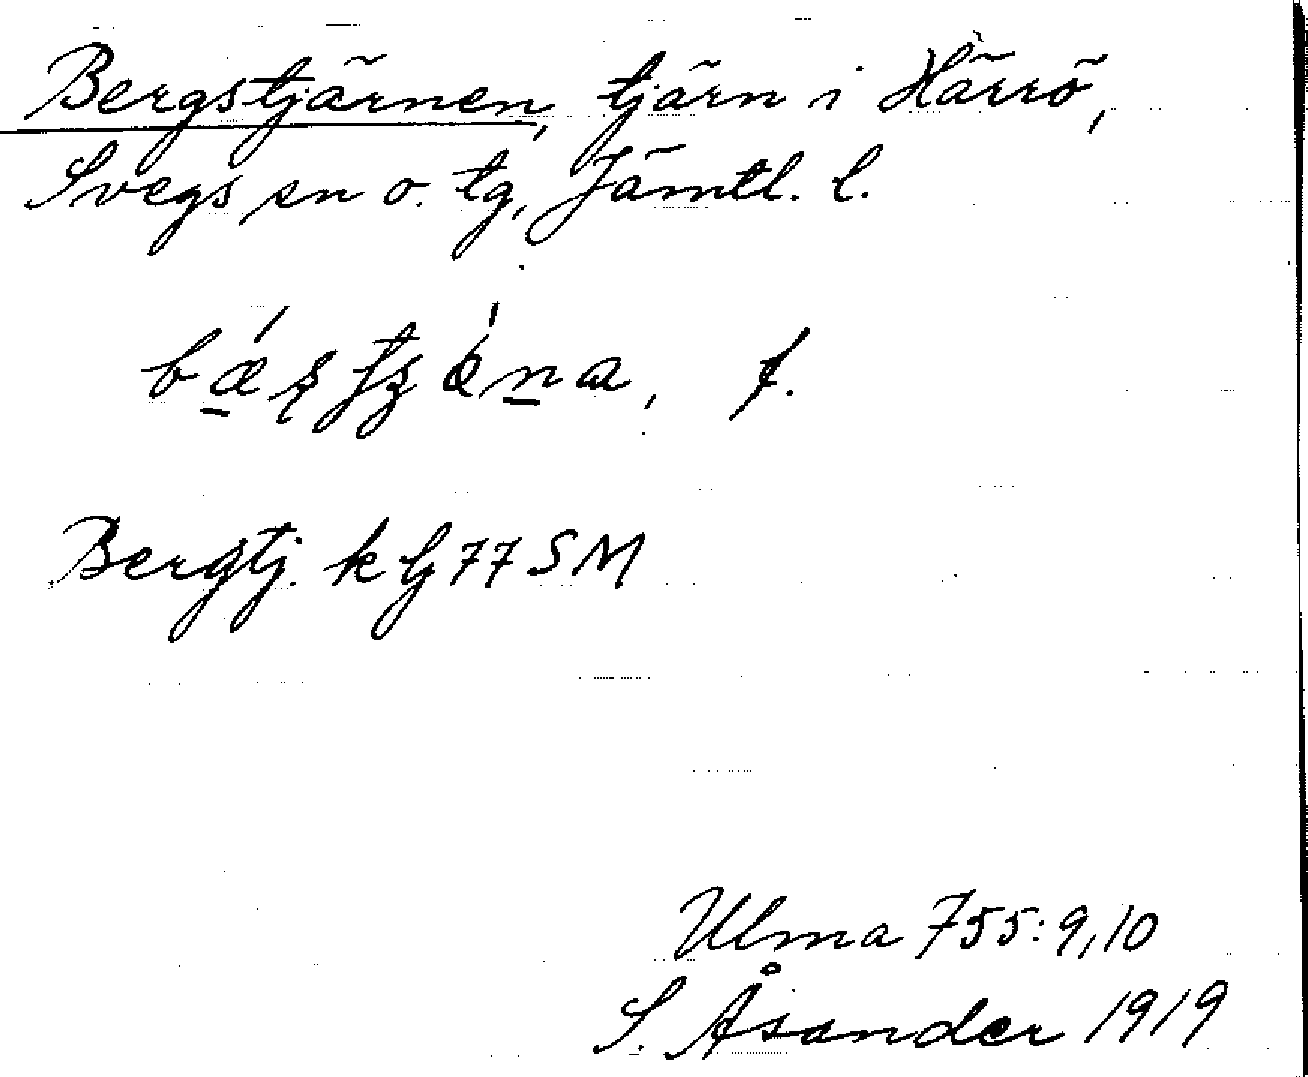 Bergstjärnen, tjärn i Härrö,
Svegs sn o. tg, Jämtl. l.
f.
Bergtj. k bj 77 SM
Ulma 755:9,10
S. Åsander 1919